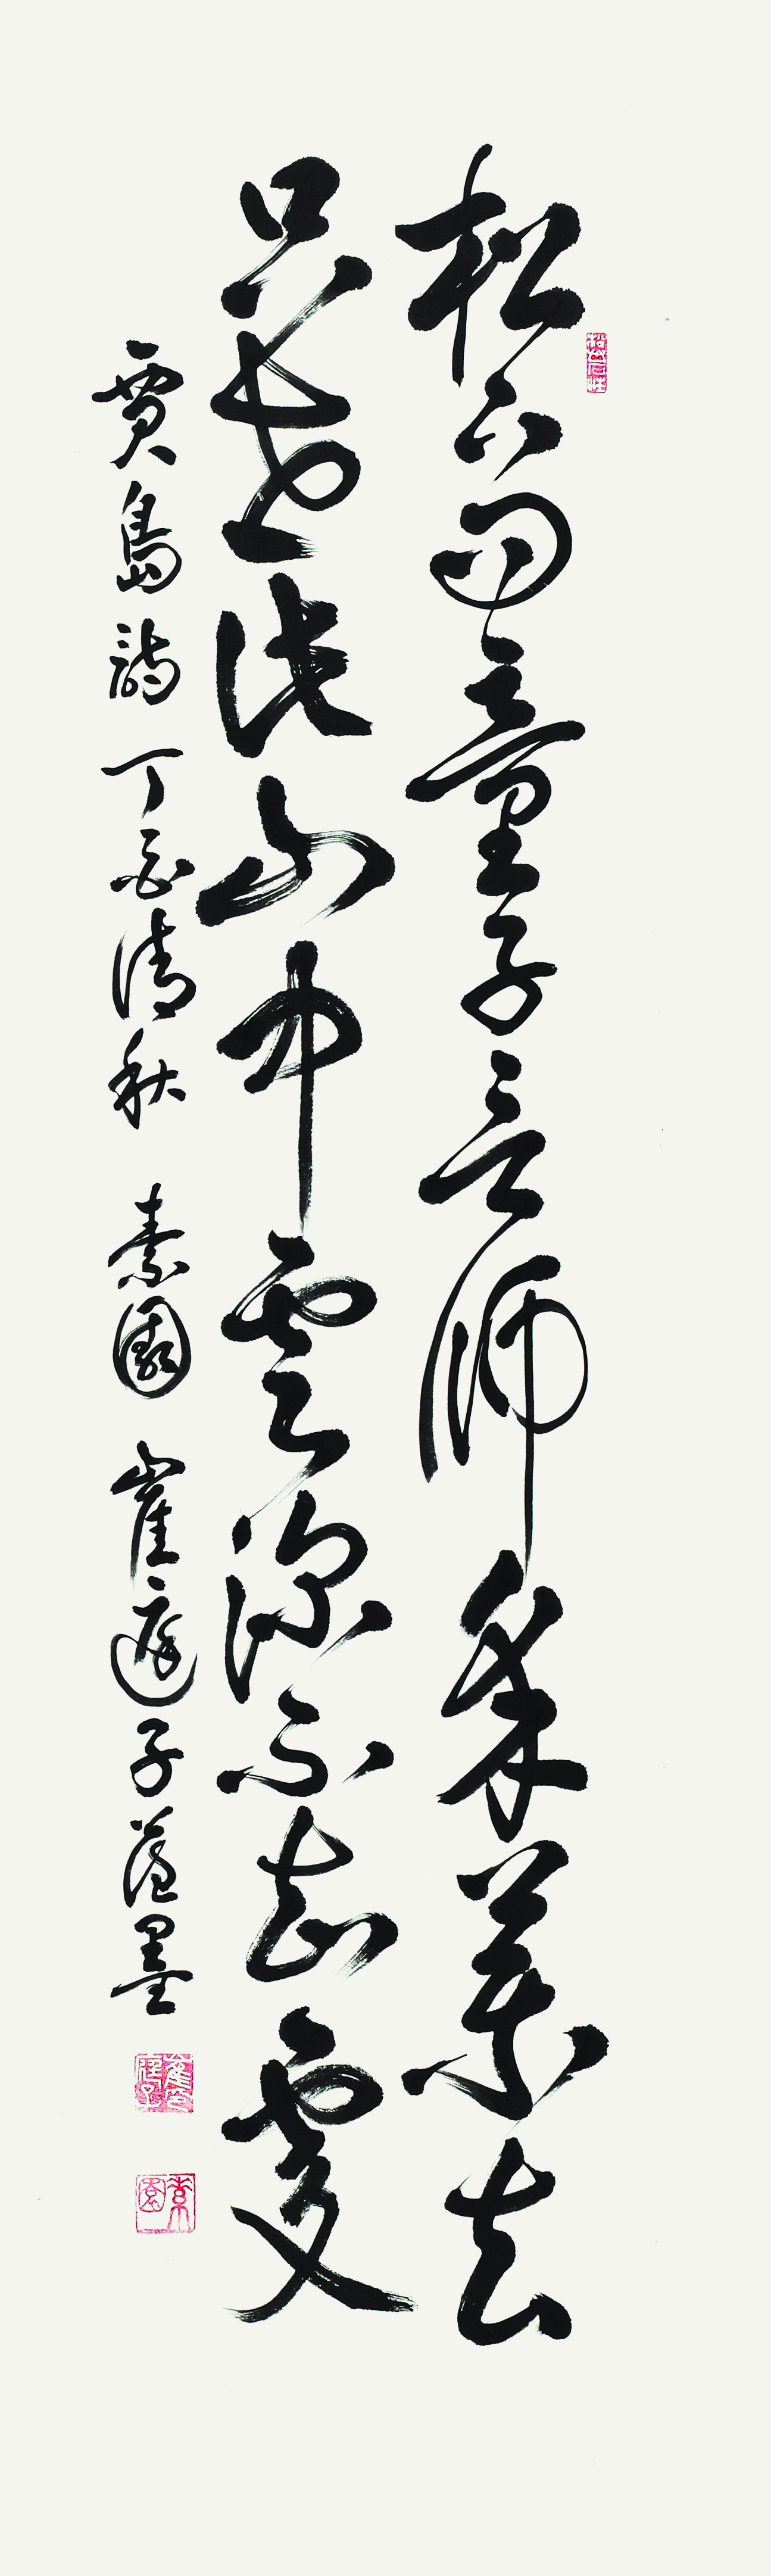 松下問童子言師采藥去
只在此山中雲深不知處
賈島詩 丁酉清秋 素園 崔庭子 墨
崔庭子印
素園